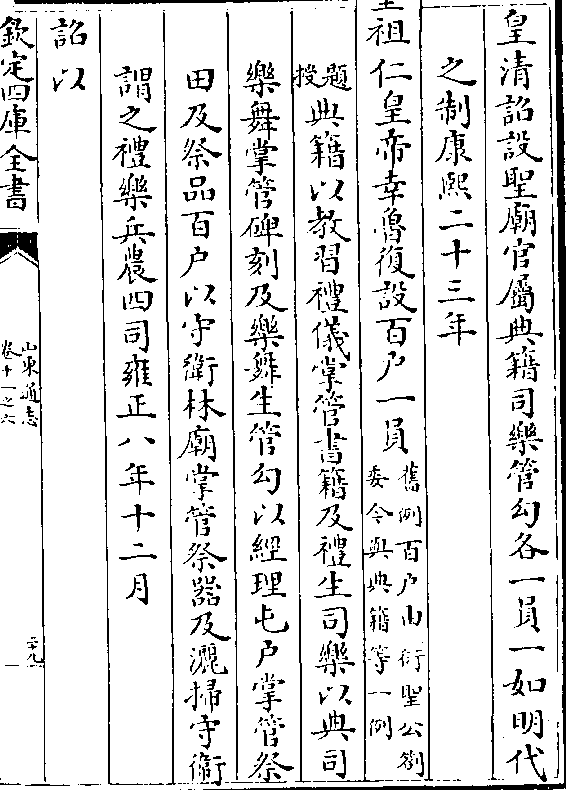 皇清詔設聖廟官屬典籍司樂管勾各一員一如明代
之制康熙二十三年
聖祖仁皇帝幸魯復設百户一員舊例百户由衍聖公劄
委今與典籍等一例
題
授典籍以教習禮儀掌管書籍及禮生司樂以典司
樂舞掌管碑刻及樂舞生管勾以經理屯户掌管祭
田及祭品百户以守衛林廟掌管祭器及灑掃守衛
謂之禮樂兵農四司雍正八年十二月
詔以
欽定四庫全書
山東通志
卷十一之六
二十九